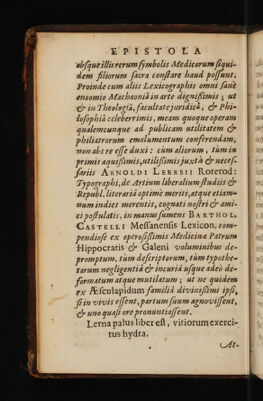 EPISTOLA
absque illiu rerum symbolis Medicorum siqui-
dem filiorum sacra constare haud possunt.
Proinde cum aliis Lexicographis omni sanè
encomio Machaoniâ in arte dignissimis; ut
& in Theologiâ, facultate juridicâ, & Phi-
losophiâ celeberrimis, meam quoque operam
qualemcunque ad publicam utilitatem &
philiatrorum emolumentum conferendam,
non abs re esse duxi: cum aliorum, tùm in
primis æquissimis, utilissimis juxtà & neces-
sariis ARNOLDI LEERSII Roterod:
Typographi, de Artium liberalium studiis &
Republ. literariâ optimè meriti, atque etiam-
num indies merentis, cognati nostri & ami-
ci postulatis, in manus sumens BARTHOL.
CASTELLI Messanensis Lexicon, com-
pendiose ex operosissimis Medicinæ Patrum
Hippocratis & Galeni voluminibus de-
promptum, tùm descriptorum, tùm typothe-
tarum negligentiâ & incuriâ usque adeò de-
formatum atque mutilatum; ut ne quidem
ex Æsculapidum familiâ divinissimi ipsi,
si in vivis essent, partum suum agnovissent,
& uno quasi ore pronuntiassent,
Lerna palus liber est, vitiorum exerci-
tus hydra.
At-